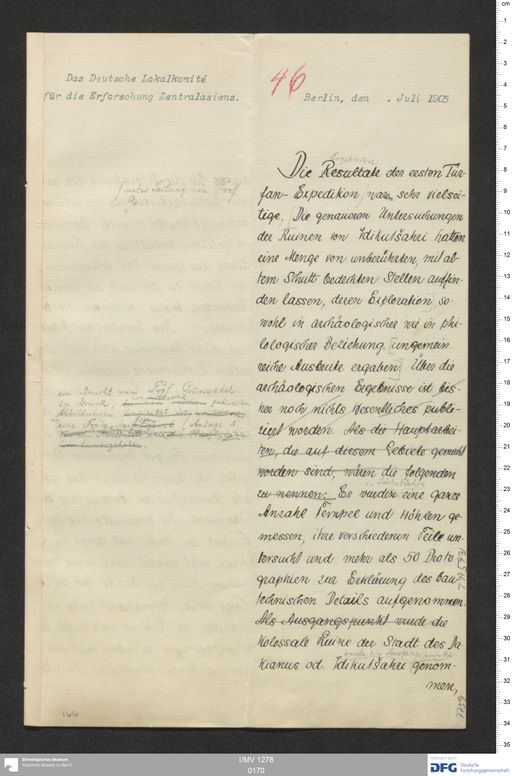 Das Deutsche Lokalkomité
für die Erforschung Zentralasiens.
46
Berlin, den . Juli 1905
Die Resultate der ersten Tur-
fan-Expedition waren sehr vielsei-
tige, Die genaueren Untersuchungen
der Ruinen von Idikutšahri hatten
eine Menge von unberührten, mit al-
tem Schutt bedeckten Stellen auffin-
den lassen, deren Exploration so-
wohl in archäologischer wie in phi-
lologischer Beziehung ungemein
reiche Ausbeute ergaben. Über die
archäologischen Ergebnisse ist bis-
her noch nichts Wesentliches publi-
ziert worden. Als die Hauptarbei-
ten, die auf diesem Gebiete gemacht
worden sind, wären die folgenden
zu nennen: Es wurden eine ganze
Anzahl Tempel und Höhlen ge-
messen, ihre verschiedenen Teile un-
tersucht und mehr als 50 Photo-
graphien zur Erklärung des bau-
technischen Details aufgenommen.
Als Ausgangspunkt wurde die
kolossale Ruine der Stadt des Da-
kianus od. Idikutšahri genom-
men,
ein Bericht von Prof. Grünwedel
im Druck,
(Anlage
I/MV 1278
0170
Ethnologisches Museum
Staatliche Museen zu Berlin
DFG Deutsche
Forschungsgemeinschaft